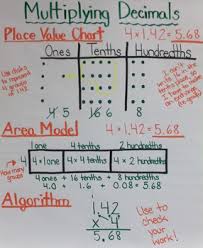 Multiplying Decimals
Place Value Chart 4×1.42=5.68
Ones Tenths Hundredths
Use disks to represent 4 groups of 1.42
4 5 16 6 8
Area Model 4×1.42=5.68
1 one 4 tenths 2 hundredths
4 4×1one 4×4 tenths 4×2 hundredths
How many groups?
4 ones + 16 tenths + 8 hundredths
4.0 + 1.6 + 0.08 = 5.68
Algorithm
1.42
× 4
5.68
Use to check your work!